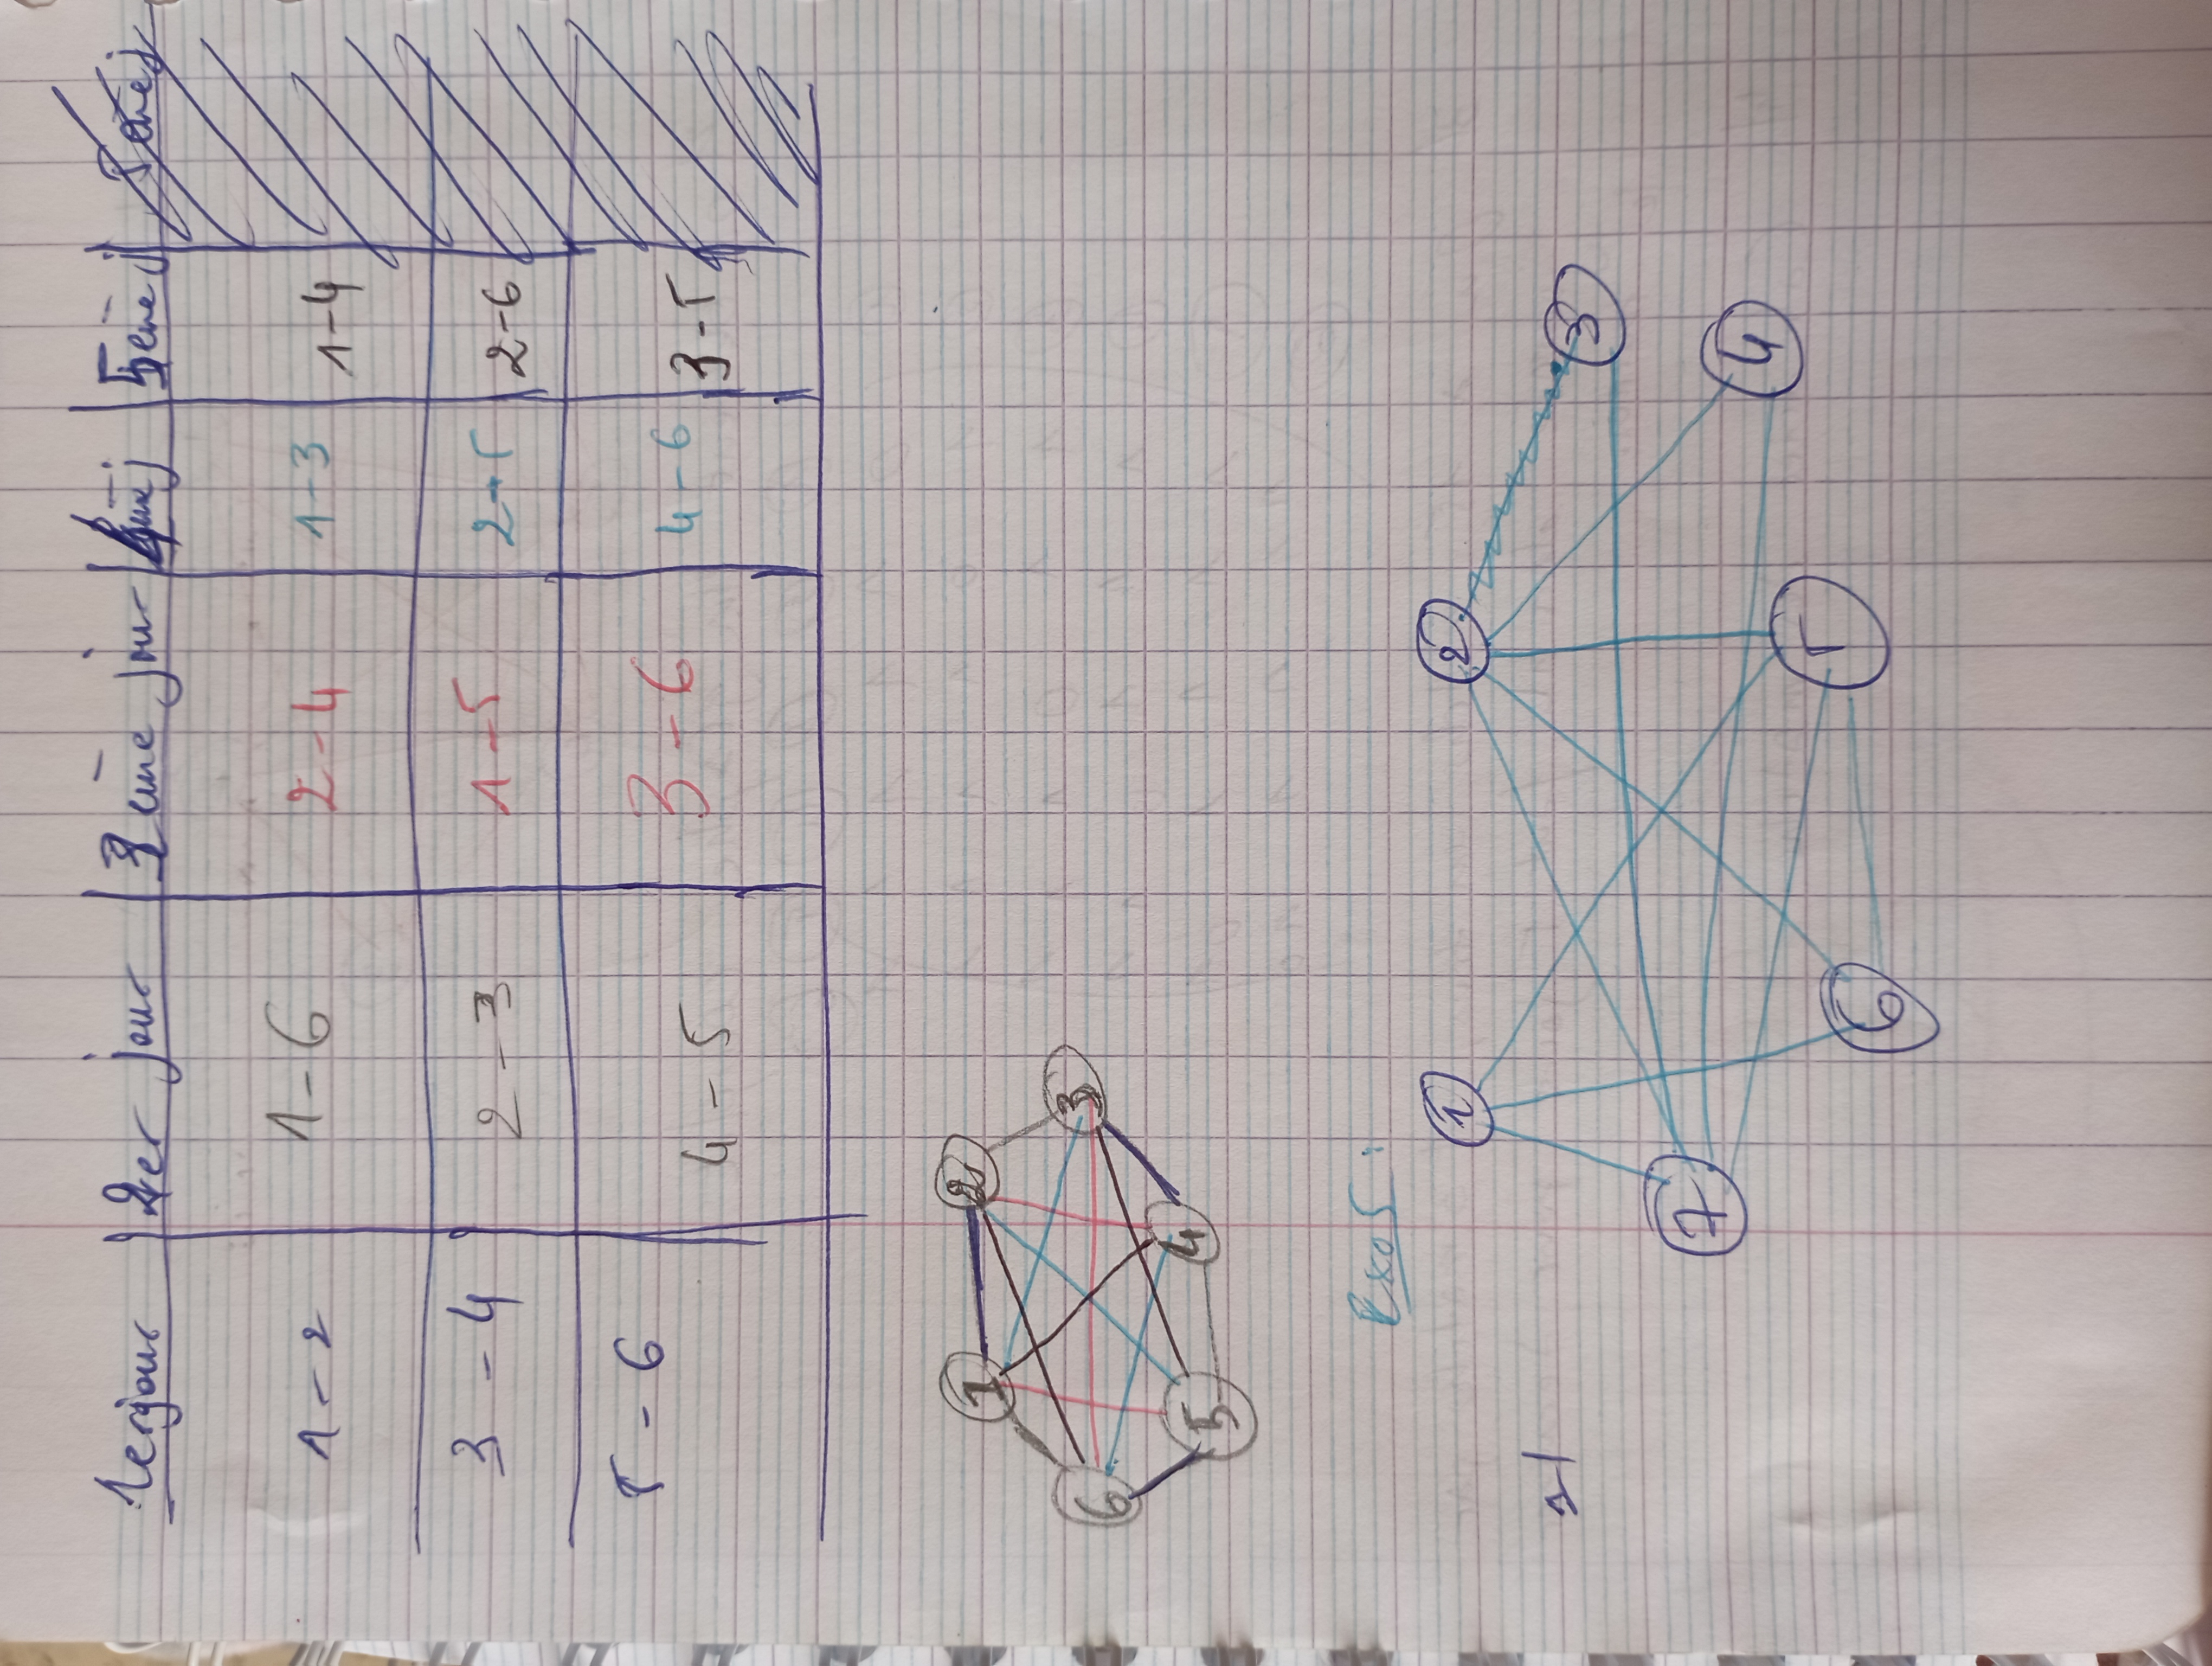 1er jour 2er jour 3 eme jour 4emej 5eme j 5emej
1-2 1-6 2-4 1-3 1-4
3-4 2-3 1-5 2-5 2-6
5-6 4-5 3-6 4-6 3-5
1 2
6 3
5 4
Exo5:
1 2
1/ 3
7 4
6 5